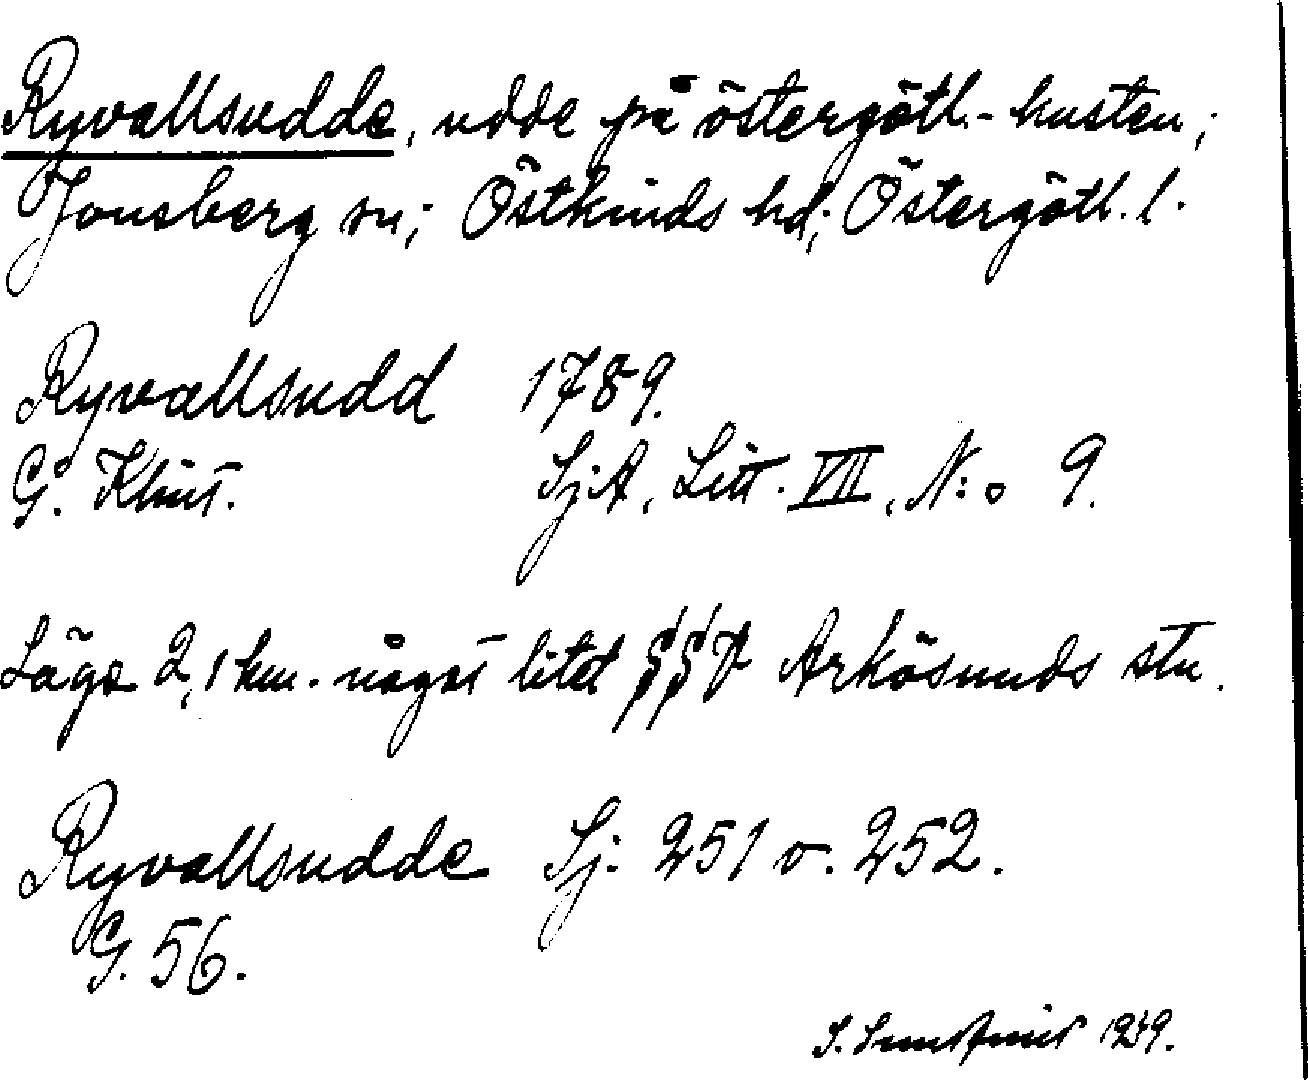 Ryvallsudde, udde på östergötl.-kusten;
Jonsberg sn; Östkinds hd; Östergötl. l.
Ryvallsudd 1789.
G. Klint. SjA, Litt. VII, N:o 9.
Läge 2,1 km. något litet SSV Arkösunds stn.
Ryvallsudde Sj. 251 o. 252.
G. 56.
S. 1929.